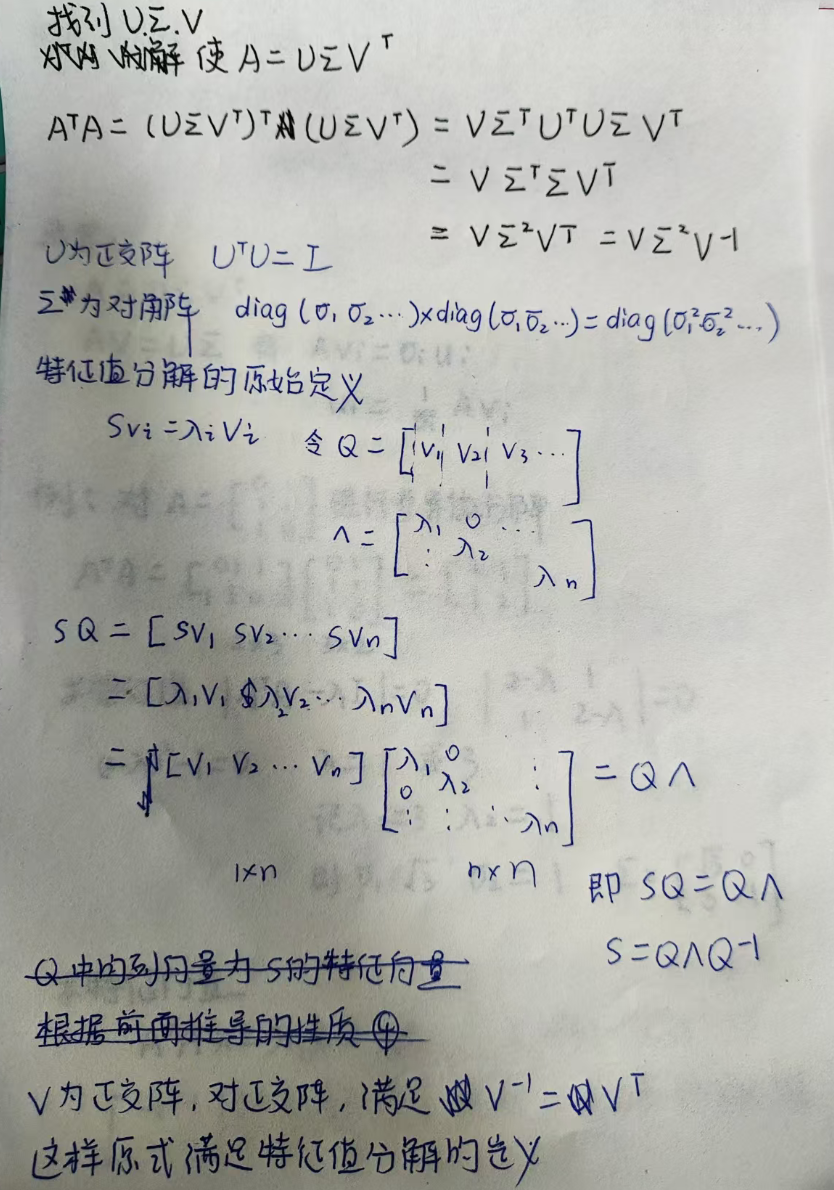 找到 U.Σ.V
使 A = UΣV^T
A^TA = (UΣV^T)^T (UΣV^T) = VΣ^TU^TUΣV^T
= VΣ^TΣV^T
= VΣ²V^T = VΣ²V^-1
U为正交阵 U^TU = I
Σ为对角阵 diag(σ₁ σ₂ …)×diag(σ₁ σ₂ …) = diag(σ₁² σ₂² …)
特征值分解的原始定义
Sv_i = λ_i V_i 令 Q = [V₁ V₂ V₃ …]
Λ = [λ₁ 0 …
⋮ λ₂
λn]
SQ = [SV₁ SV₂ … SVn]
= [λ₁V₁ λ₂V₂ … λnVn]
= [V₁ V₂ … Vn] [λ₁ 0 ⋮
0 λ₂
⋮ ⋮ ⋱ λn] = QΛ
1×n n×n 即 SQ = QΛ
S = QΛQ^-1
Q 中的列向量为 S的特征向量
根据前面推导的性质 ④
V为正交阵, 对正交阵, 满足 V^-1 = V^T
这样原式满足特征值分解的定义